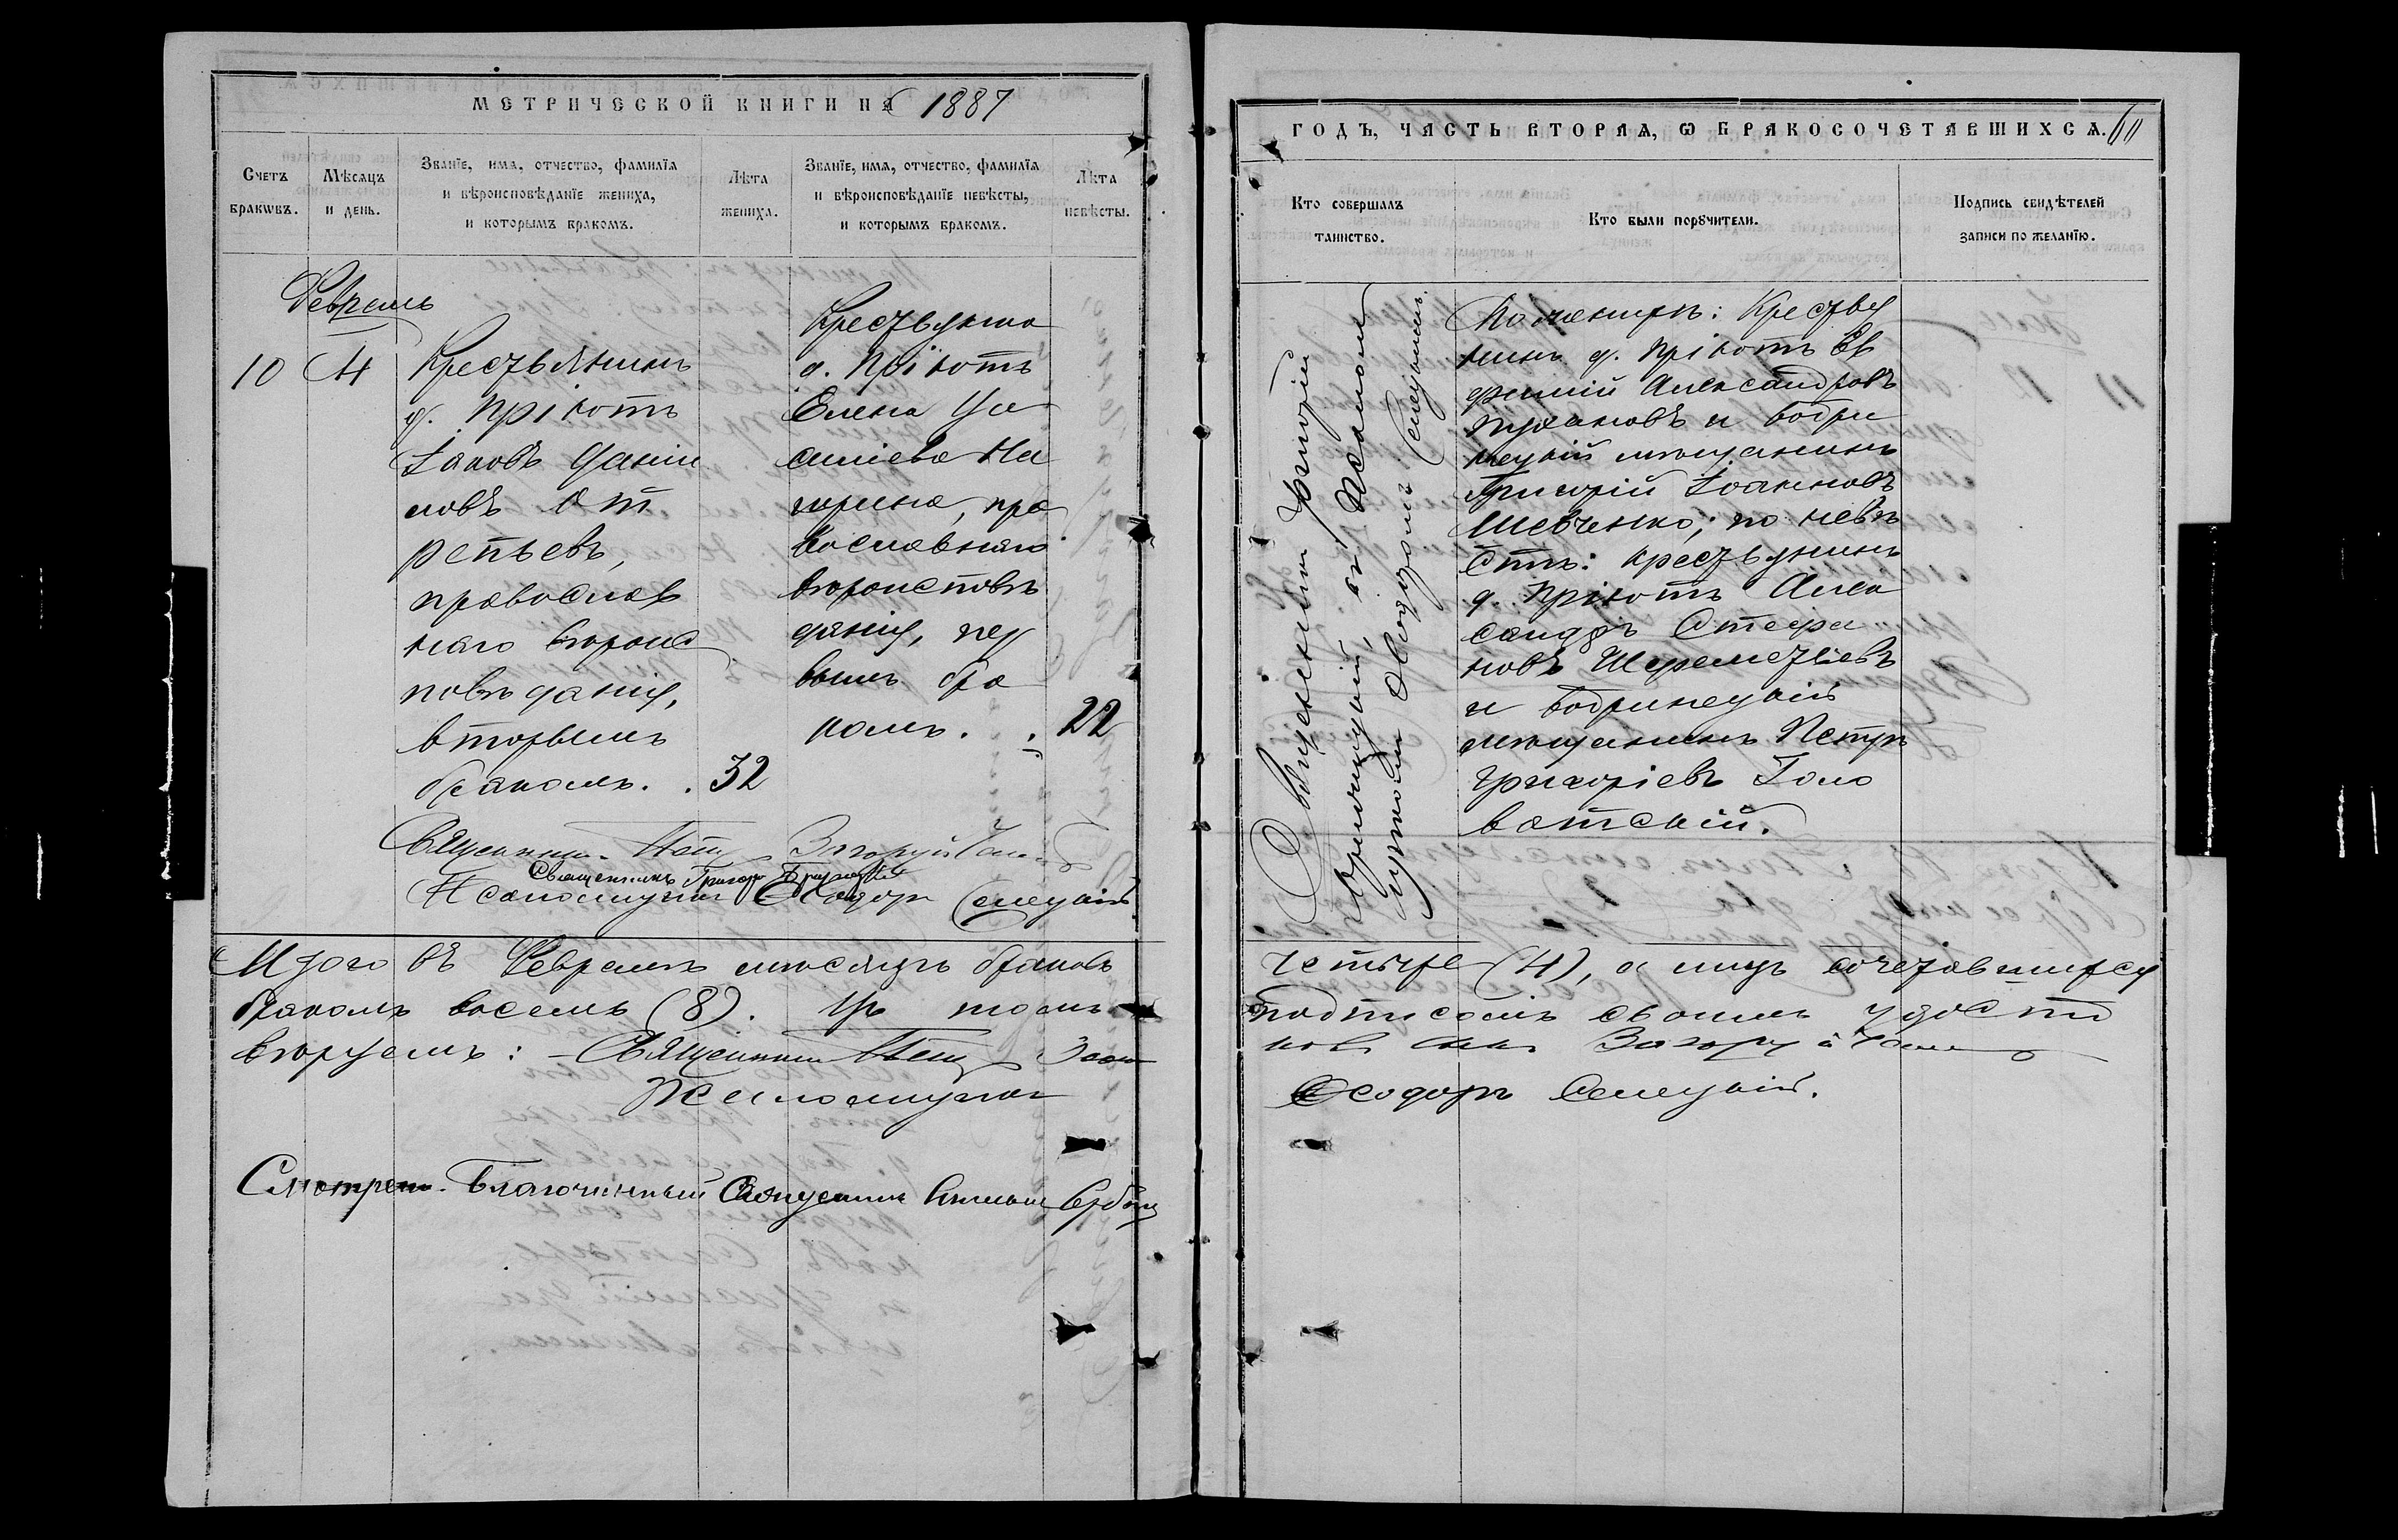 МЕТРИЧЕСКОЙ КНИГИ НА 1887
Счетъ браковъ.
Мѣсяцъ и день.
Званіе, имя, отчество, фамилія и вѣроисповѣданіе жениха, и которымъ бракомъ.
Лѣта жениха.
Званіе, имя, отчество, фамилія и вѣроисповѣданіе невѣсты, и которымъ бракомъ.
Лѣта невѣсты.
Февраль
10
4
Крестьянинъ
д. Пріютъ
Іаковъ Даніи
ловъ
православ
наго вѣроис
повѣданія,
вторымъ
бракомъ.
32
Крестьянка
д. Пріютъ
Елена
горина, пра
вославнаго
вѣроисповѣ
данія, пер
вымъ бра
комъ.
22
Священникъ Петръ
Священникъ Григорій
Псаломщикъ Ѳеодоръ Селецкій
Итого въ Февралѣ мѣсяцѣ браковъ
бракомъ восемь (8). Въ томъ
вѣруемъ: Священникъ Петръ
Псаломщикъ
Смотрелъ Благочинный Священникъ
ГОДЪ, ЧАСТЬ ВТОРАЯ, Ѡ БРАКОСОЧЕТАВШИХСЯ.
Кто совершалъ таинство.
Кто были поручители.
Подпись свидѣтелей записи по желанію.
Священникъ Григорій
съ Псаломщи
комъ Ѳеодоромъ Селецкимъ.
По женихѣ: Крестья
нинъ д. Пріютъ Ев
фимій Александровъ
и Бобри
нецкій мѣщанинъ
Григорій Іоанновъ
Шевченко; по невѣ
стѣ: крестьянинъ
д. Пріютъ Алек
сандръ Стефа
новъ Шереметьевъ
и Бобринецкій
мѣщанинъ Петръ
Григоріевъ Голо
ватскій.
четыре (4), а лицъ сочетавшихся
подписомъ своимъ удосто
Ѳеодоръ Селецкій.